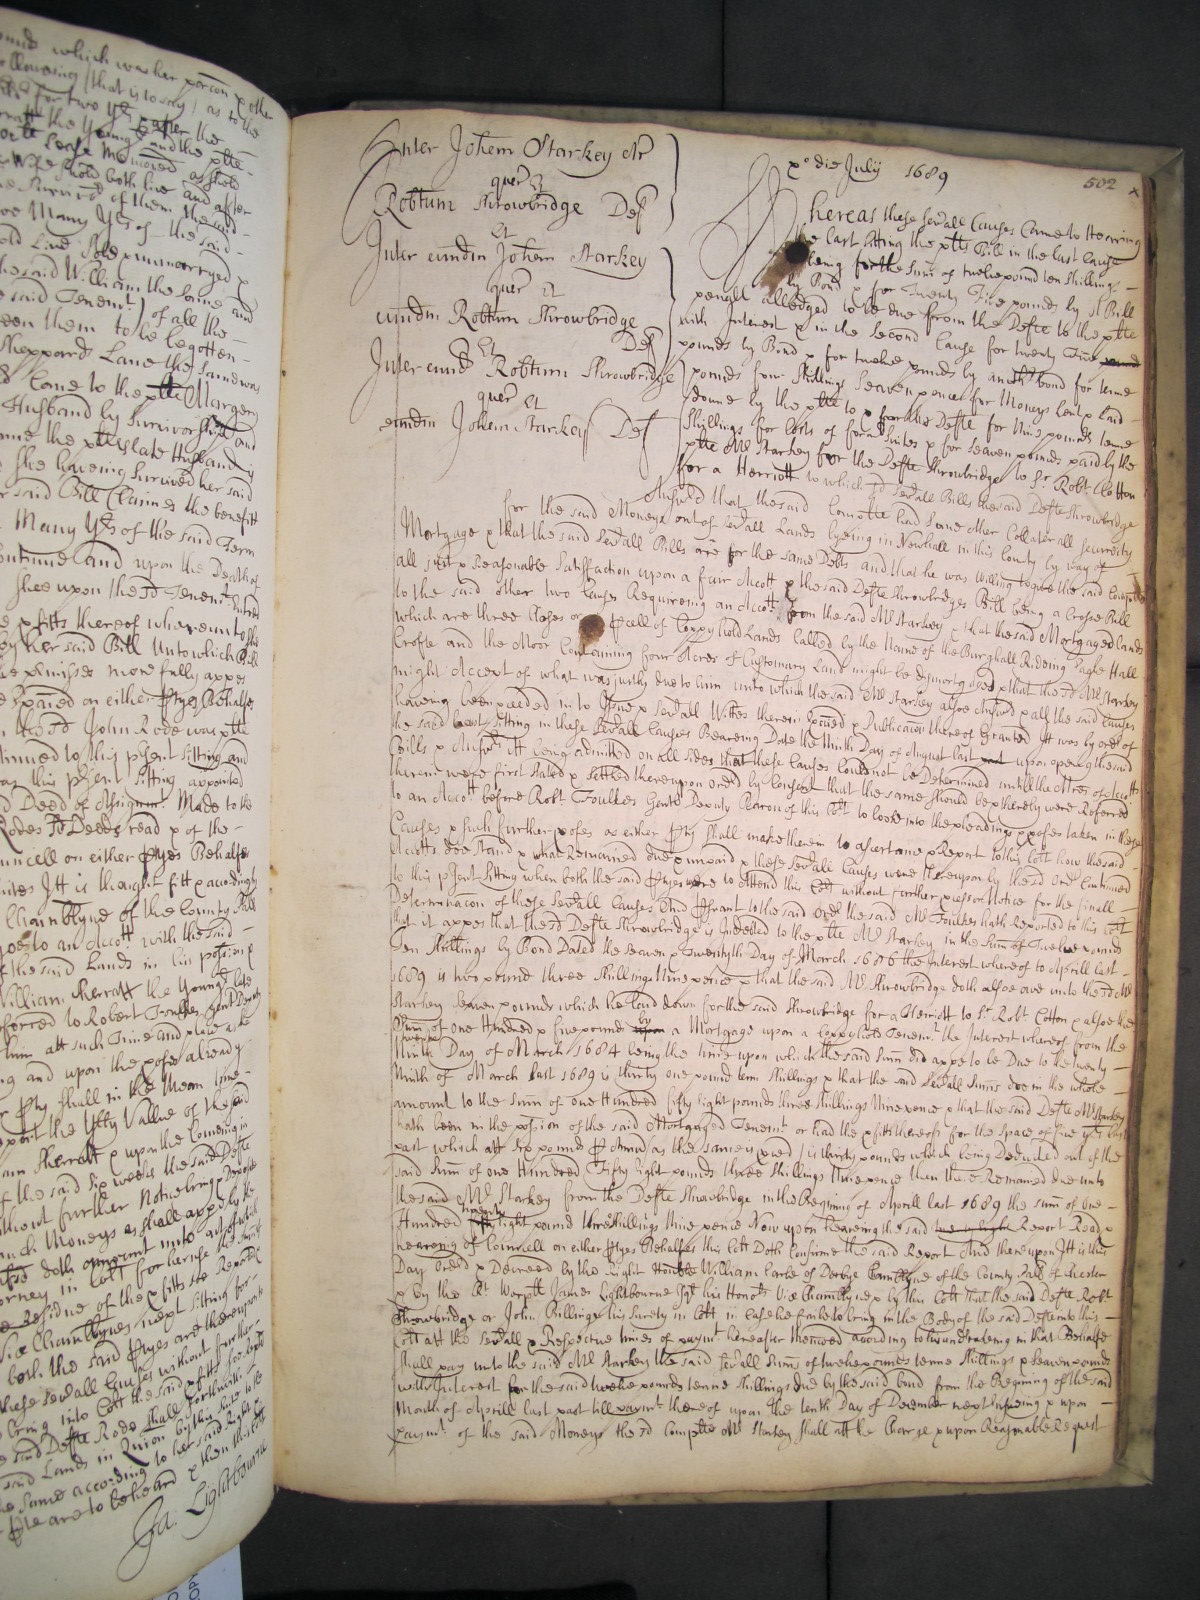 ound which was her porcon & other
ollowing (that is to say) as to the
for two yrs after the
rratt the Young and the plte
sorte Lease Menconed as shold
Wife shold both live and after
Surviv of them the said
soe Many Yrs of the said
old Live Sole & unmarryed &
he said William the Sonne and
e said Tenemt) of all the
een them to be begotten
Sheppard Lane the said was
come to the plte Margery
Husband by Survivorship and
ame the pltes late Husband
She haveing Survived her said
r said Bill Claimes the benefitt
Many Yrs of the said Term
ontinue and upon the Death of
Shee upon the sd Tenemt Entred
& pfitts thereof whereunto
by her said Bill Unto which Bill
e pmisses more fully appes
Exaied on either Ptyes Behalfe
the sd John Rode was plte
tinued to this psent Sitting and
was this psent Sitting appointed
Deed of Assignmt Made to the
Rodes sd Deeds read & of the
ouncell on either Ptyes Behalfe
ites Itt is thought fitt & accordingly
Chamblyne of the County Pall
goe to an Accott with the said
the said Lands in his possion &
William Sherratt the Younger late
forred to Robert Foulkes Gent Deputy
him att such Time and place as he
ng and upon the pofes already
Pty shall in the Mean time
port the Yrly Value of the said
am Sherratt & upon the Comeing in
f the said six weeks the said Defte
ithout further Notice bring & Deposite
uch Moneys as shall appe by the
doth amount unto out of which
orney in Cott for her use the Summe
e Residue of the pfitts to Remaine
Vice Chamblynes next sitting for
both the said Ptyes are thereupon to
these sevall Causes without further
bring into Cott the said pfitts soe kept
e said Defte Rode shall forthwith
said Lands in Quion by this Suite to the
Same according to her said Right
ple are to be heard & then this Cott
Ja: Lightbourne
502
xo die July 1689
Inter Johem Starkey Ar
quer Et
Robtum Shrowbridge Def
Et
Inter eundm Johem Starkey
quer Et
eundm Robtum Shrowbridge
Def
Et
Inter eund Robtum Shrowbridge
quer Et
eundm Johem Starkey Def
Whereas these sevall Causes Came to Hearing
last sitting the plts Bill in the last Cause
being for the Sum of twelve pound ten shillings
by Bond & for Twenty Five pounds by Bill
penall alledged to be due from the Defte to the plte
with Interest & in the Second Cause for twenty Five
pounds by Bond & for twelve pounds by anoth bond for tenne
pounds four Shillings Seaven pence for Moneys Lent & Laid
downe by the plte to & for the Defte for Nine pounds tenne
Shillings for Costs of former Suites & for Seaven pounds paid by the
plte Mr Starkey for the Defte Shrowbridge to Sr Robt Cotton
for a Herriott to which sd Sevall Bills the said Defte Shrowbridge
Answd that the said Complte had some other Collaterall security
for the said Moneys out of sevall Lands lyeing in Newhall in this County by way of
Mortgage & that the said sevall Bills are for the same Debts and that he was willing to give the said Complte
all just & Reasonable Satisfaction upon a fair Accott & the said Defte Shrowbridges Bill being a Crosse Bill
to the said other two Causes Requireing an Accott from the said Mr Starkey & that the said Mortgaged Lands
which are three Closes or pcell of Coppyhold Lands Called by the Name of the Burghall Rideing Pagle Hall
Crofte and the Moor Containing four Acres of Customary Land might be dismortgaged & that the sd Mr Starkey
might Accept of what was justly due to him unto which the said Mr Starkey alsoe Answd & all the said Causes
haveing been pceeded in to Issue & sevall Wittes therein Exaied & Publicacon thereof Granted Itt was by ordr of
the said last sitting in these Sevall Causes Beareing Date the Ninth Day of August last upon opening the said
Bills & Answrs Itt being admitted on all sides that these Causes Could not be Determined untill the Mres of Accott
therein were first Stated & Settled thereupon ordd by Consent that the same should be & thereby were Referred
to an Accott before Robt Foulkes Gentn Deputy Baron of this Cott to looke into the pleadings & pofes taken in these
Causes & such further pofes as either Pty shall make therein to assertaine & Report to this Cott how the said
Accotts doe Stand & what Remained due & unpaid & these sevall Causes were thereupon by the sd Ordr Continued
to this psent sitting when both the said Ptyes were to Attend this Cott without further Notice for the finall
Determinacon of these Sevall Causes And Psuant to the said Order the said Mr Foulkes hath Reported to this Cott
that it appes that the sd Defte Shrowbridge is Indebted to the plte Mr Starkey in the Summ of Twelve pounds
Ten Shillings by Bond Dated the Seaven & Twentyth Day of March 1686 the Interest whereof to Aprill last
1689 is two pound three Shillings Nine pence & that the said Mr Shrowbridge doth alsoe owe unto the sd Mr
Starkey Seaven pounds which he laid down for the said Shrowbridge for a Herriott to Sr Robt Cotton & alsoe the
Summ of one Hundred & five pounds by a Mortgage upon a Coppyhold Tenemt the Interest whereof from the
twenty
Ninth Day of March 1684 being the time upon which the said Summ did appe to be Due to the twenty
Ninth of March last 1689 is thirty one pound tenn shillings & that the said sevall Summs doe in the whole
amount to the Summ of one Hundred fifty Eight pounds three shillings Nine pence & that the said Defte Mr Starkey
hath been in the possion of the said Mortgaged Tenemt or had the pfitts thereof for the space of five yrs last
past which att Six pounds P Annu (as the same is pved) is thirty pounds which being Deducted out of the
said Summ of one Hundred Fifty Eight pounds three Shillings Nine pence then there Remained due unto
the said Mr Starkey from the Defte Shrowbridge in the Begining of Aprill last 1689 the summ of one
twenty
Hundred Eight pound three Shillings Nine pence Now upon heareing the said Report Read &
heareing of Councell on either Ptyes Behalfes this Cott Doth Confirme the said Report And thereupon Itt is this
Day Ordrd & Decreed by the Right Honble William Earle of Derbye Chamblyne of the County Pall of Chester
& by the Rt Worspll James Lightbourne Esqr his Honors Vice Chamblyne & by this Cott That the said Defte Robt
Shrowbridge or John Billinge his surety in Cott in case he faile to bring in the Body of the said Defte into this
Cott att the sevall & Respective times of paymt hereafter menconed according to his undertakeing in that Behalfe
shall pay unto the said Mr Starkey the said sevall Summs of twelve pounds tenne Shillings & Seaven pounds
with Interest for the said twelve pounds tenne shillings due by the said bond from the Begining of the said
Month of Aprill last past till paymt thereof upon the tenth Day of December next Ensueing & upon
paymt of the said Moneys the sd Complte Mr Starkey shall att the Charge & upon Reasonable Request